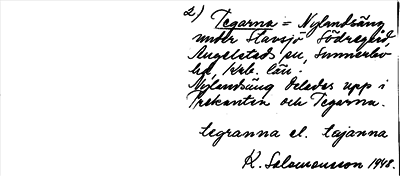 2) Tegarna = Nylandsäng
under Stavsjö Södregård,
Angelstads sn, Sunnerbo
hd, Krb. län.
Nylandsäng delades upp i
Trekanten och Tegarna.
tegranna el. tajanna
K. Salomonsson 1948.